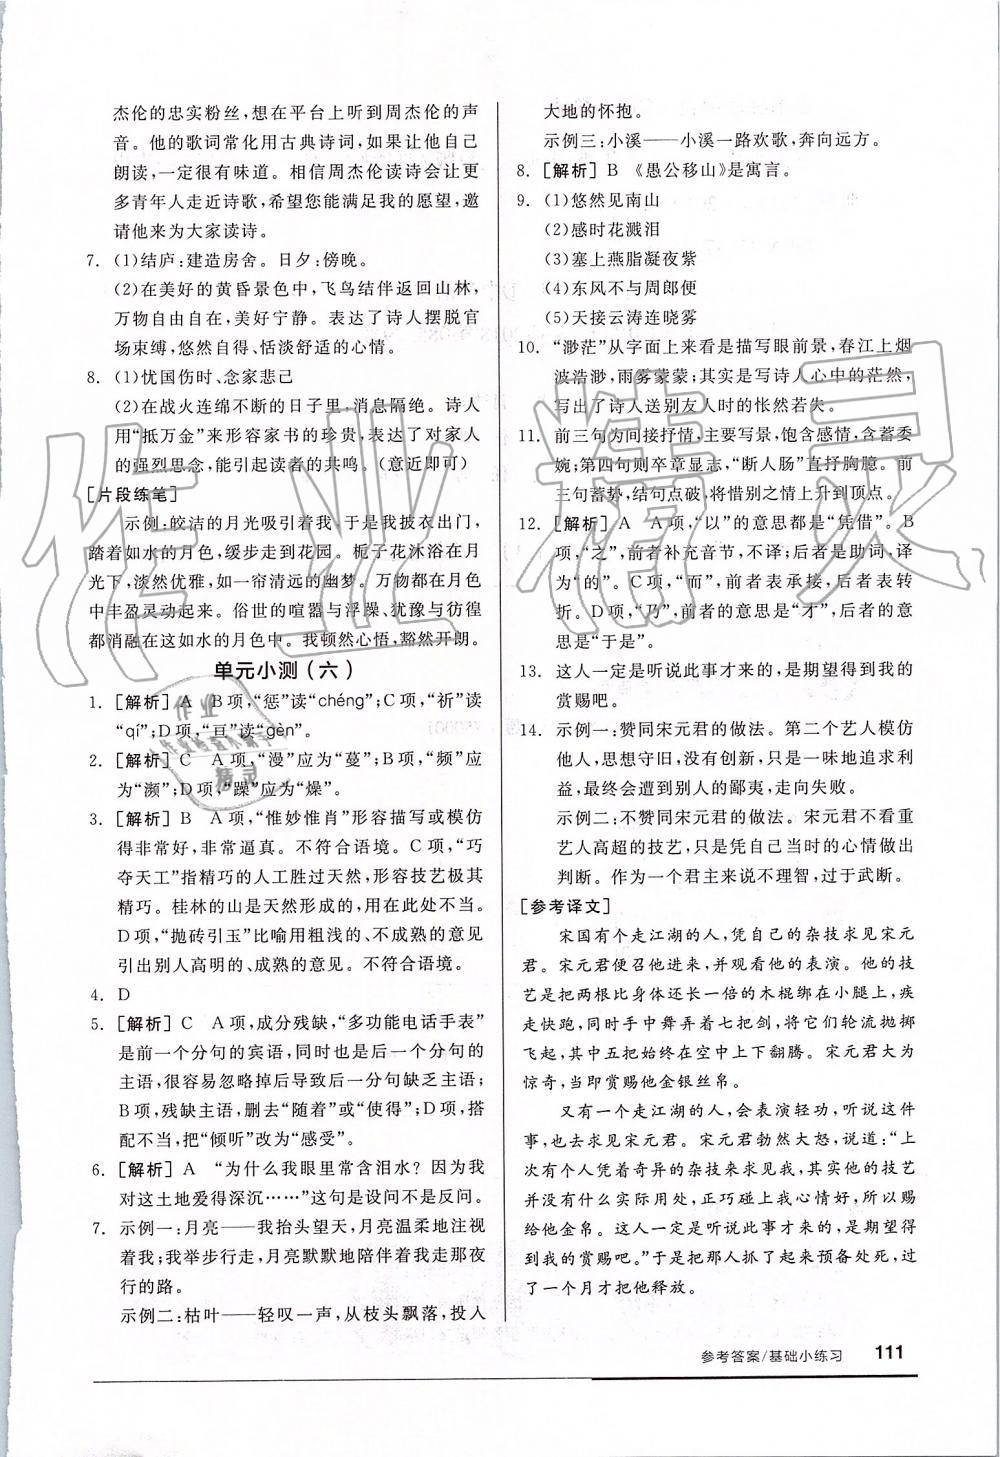 杰伦的忠实粉丝,想在平台上听到周杰伦的声
音。他的歌词常化用古典诗词,如果让他自己
朗读,一定很有味道。相信周杰伦读诗会让更
多青年人走近诗歌,希望您能满足我的愿望,邀
请他来为大家读诗。
7. (1)结庐:建造房舍。日夕:傍晚。
(2)在美好的黄昏景色中,飞鸟结伴返回山林,
万物自由自在,美好宁静。表达了诗人摆脱官
场束缚,悠然自得、恬淡舒适的心情。
8. (1)忧国伤时、念家悲己
(2)在战火连绵不断的日子里,消息隔绝。诗人
用“抵万金”来形容家书的珍贵,表达了对家人
的强烈思念,能引起读者的共鸣。(意近即可)
[片段练笔]
示例:皎洁的月光吸引着我,于是我披衣出门,
踏着如水的月色,缓步走到花园。栀子花沐浴在月
光下,淡然优雅,如一帘清远的幽梦。万物都在月色
中丰盈灵动起来。俗世的喧嚣与浮躁、犹豫与彷徨
都消融在这如水的月色中。我顿然心悟,豁然开朗。
单元小测(六)
1. [解析] A B项,“惩”读“chéng”;C项,“祈”读
“qí”;D项,“亘”读“gèn”。
2. [解析] C A项,“漫”应为“蔓”;B项,“频”应
为“濒”;D项,“躁”应为“燥”。
3. [解析] B A项,“惟妙惟肖”形容描写或模仿
得非常好,非常逼真。不符合语境。C项,“巧
夺天工”指精巧的人工胜过天然,形容技艺极其
精巧。桂林的山是天然形成的,用在此处不当。
D项,“抛砖引玉”比喻用粗浅的、不成熟的意见
引出别人高明的、成熟的意见。不符合语境。
4. D
5. [解析] C A项,成分残缺,“多功能电话手表”
是前一个分句的宾语,同时也是后一个分句的
主语,很容易忽略掉后导致后一分句缺乏主语;
B项,残缺主语,删去“随着”或“使得”;D项,搭
配不当,把“倾听”改为“感受”。
6. [解析] A “为什么我眼里常含泪水?因为我
对这土地爱得深沉……”这句是设问不是反问。
7. 示例一:月亮——我抬头望天,月亮温柔地注视
着我;我举步行走,月亮默默地陪伴着我走那夜
行的路。
示例二:枯叶——轻叹一声,从枝头飘落,投入
大地的怀抱。
示例三:小溪——小溪一路欢歌,奔向远方。
8. [解析] B 《愚公移山》是寓言。
9. (1)悠然见南山
(2)感时花溅泪
(3)塞上燕脂凝夜紫
(4)东风不与周郎便
(5)天接云涛连晓雾
10. “渺茫”从字面上来看是描写眼前景,春江上烟
波浩渺,雨雾蒙蒙;其实是写诗人心中的茫然,
写出了诗人送别友人时的怅然若失。
11. 前三句为间接抒情,主要写景,饱含感情,含蓄委
婉;第四句则卒章显志,“断人肠”直抒胸臆。前
三句蓄势,结句点破,将惜别之情上升到顶点。
12. [解析] A A项,“以”的意思都是“凭借”。B
项,“之”,前者补充音节,不译;后者是助词,译
为“的”。C项,“而”,前者表承接,后者表转
折。D项,“乃”,前者的意思是“才”,后者的意
思是“于是”。
13. 这人一定是听说此事才来的,是期望得到我的
赏赐吧。
14. 示例一:赞同宋元君的做法。第二个艺人模仿
他人,思想守旧,没有创新,只是一味地追求利
益,最终会遭到别人的鄙夷,走向失败。
示例二:不赞同宋元君的做法。宋元君不看重
艺人高超的技艺,只是凭自己当时的心情做出
判断。作为一个君主来说不理智,过于武断。
[参考译文]
宋国有个走江湖的人,凭自己的杂技求见宋元
君。宋元君便召他进来,并观看他的表演。他的技
艺是把两根比身体还长一倍的木棍绑在小腿上,疾
走快跑,同时手中舞弄着七把剑,将它们轮流抛掷
飞起,其中五把始终在空中上下翻腾。宋元君大为
惊奇,当即赏赐他金银丝帛。
又有一个走江湖的人,会表演轻功,听说这件
事,也去求见宋元君。宋元君勃然大怒,说道:“上
次有个人凭着奇异的杂技来求见我,但是他的技艺
并没有什么实际用处,正巧碰上我心情好,所以赐
给他金帛。这人一定是听说此事才来的,是期望得
到我的赏赐吧。”于是派人抓了起来预备处死,过
了一个月才把他释放。
参考答案/基础小练习 111
作业精灵
作业
精灵